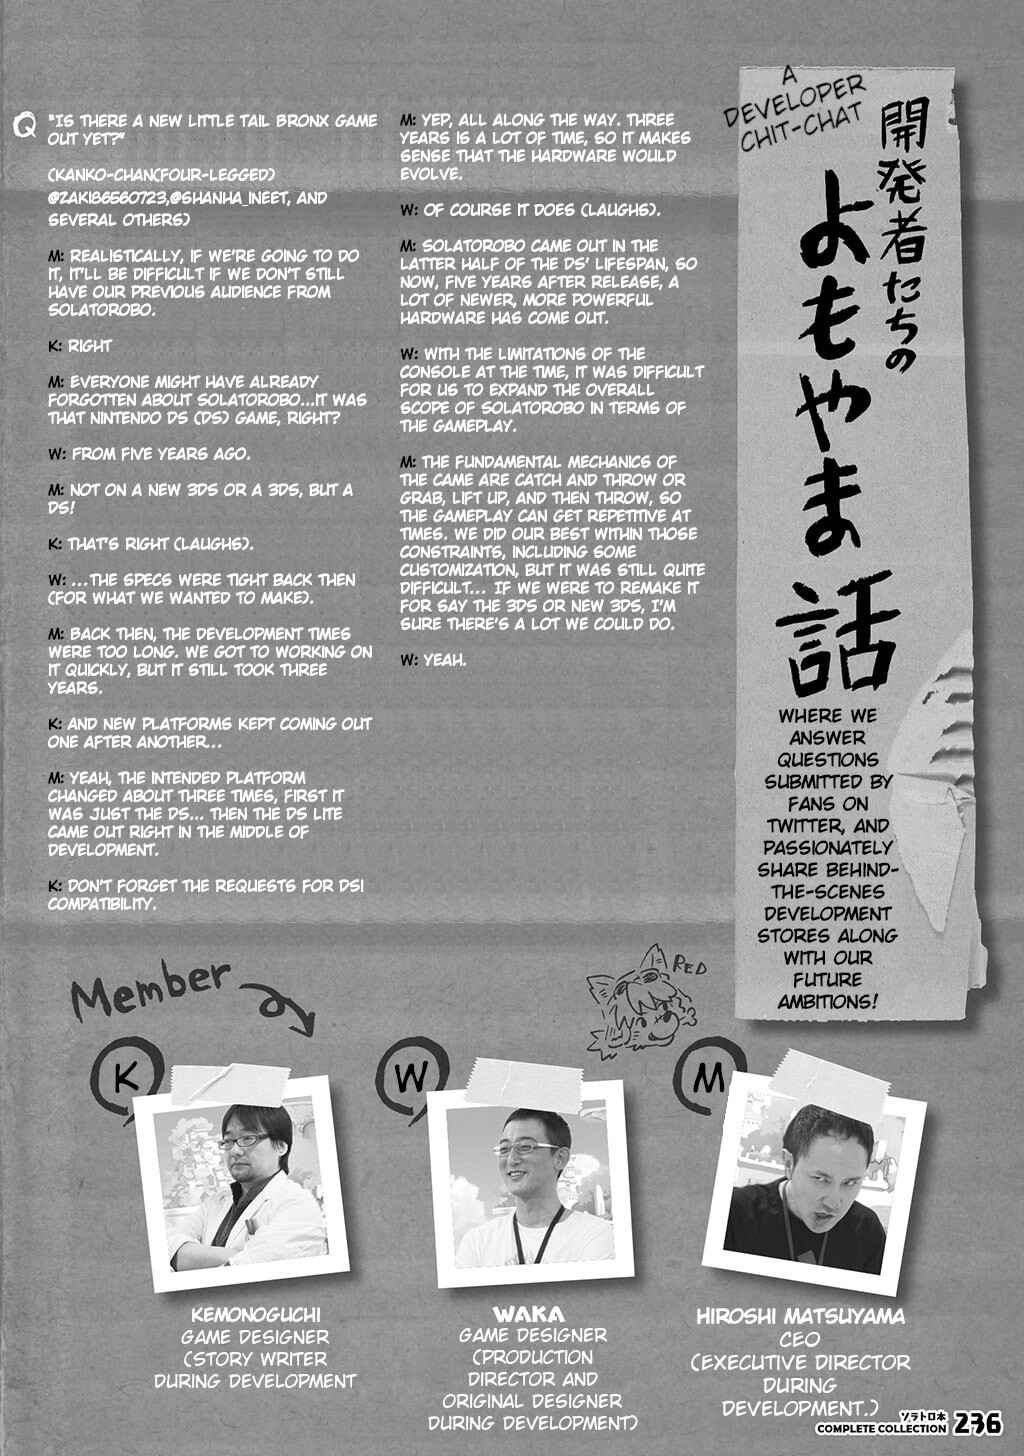 A
DEVELOPER
CHIT-CHAT
開発者たちの
よもやま話
WHERE WE
ANSWER
QUESTIONS
SUBMITTED BY
FANS ON
TWITTER, AND
PASSIONATELY
SHARE BEHIND-
THE-SCENES
DEVELOPMENT
STORES ALONG
WITH OUR
FUTURE
AMBITIONS!
Q "IS THERE A NEW LITTLE TAIL BRONX GAME
OUT YET?"
(KANKO-CHAN(FOUR-LEGGED)
@ZAKI86560723,@SHANHA_INEET, AND
SEVERAL OTHERS)
M: REALISTICALLY, IF WE'RE GOING TO DO
IT, IT'LL BE DIFFICULT IF WE DON'T STILL
HAVE OUR PREVIOUS AUDIENCE FROM
SOLATOROBO.
K: RIGHT
M: EVERYONE MIGHT HAVE ALREADY
FORGOTTEN ABOUT SOLATOROBO...IT WAS
THAT NINTENDO DS (DS) GAME, RIGHT?
W: FROM FIVE YEARS AGO.
M: NOT ON A NEW 3DS OR A 3DS, BUT A
DS!
K: THAT'S RIGHT (LAUGHS).
W: ...THE SPECS WERE TIGHT BACK THEN
(FOR WHAT WE WANTED TO MAKE).
M: BACK THEN, THE DEVELOPMENT TIMES
WERE TOO LONG. WE GOT TO WORKING ON
IT QUICKLY, BUT IT STILL TOOK THREE
YEARS.
K: AND NEW PLATFORMS KEPT COMING OUT
ONE AFTER ANOTHER...
M: YEAH, THE INTENDED PLATFORM
CHANGED ABOUT THREE TIMES, FIRST IT
WAS JUST THE DS... THEN THE DS LITE
CAME OUT RIGHT IN THE MIDDLE OF
DEVELOPMENT.
K: DON'T FORGET THE REQUESTS FOR DSI
COMPATIBILITY.
M: YEP, ALL ALONG THE WAY. THREE
YEARS IS A LOT OF TIME, SO IT MAKES
SENSE THAT THE HARDWARE WOULD
EVOLVE.
W: OF COURSE IT DOES (LAUGHS).
M: SOLATOROBO CAME OUT IN THE
LATTER HALF OF THE DS' LIFESPAN, SO
NOW, FIVE YEARS AFTER RELEASE, A
LOT OF NEWER, MORE POWERFUL
HARDWARE HAS COME OUT.
W: WITH THE LIMITATIONS OF THE
CONSOLE AT THE TIME, IT WAS DIFFICULT
FOR US TO EXPAND THE OVERALL
SCOPE OF SOLATOROBO IN TERMS OF
THE GAMEPLAY.
M: THE FUNDAMENTAL MECHANICS OF
THE CAME ARE CATCH AND THROW OR
GRAB, LIFT UP, AND THEN THROW, SO
THE GAMEPLAY CAN GET REPETITIVE AT
TIMES. WE DID OUR BEST WITHIN THOSE
CONSTRAINTS, INCLUDING SOME
CUSTOMIZATION, BUT IT WAS STILL QUITE
DIFFICULT... IF WE WERE TO REMAKE IT
FOR SAY THE 3DS OR NEW 3DS, I'M
SURE THERE'S A LOT WE COULD DO.
W: YEAH.
Member
RED
K
W
M
KEMONOGUCHI
GAME DESIGNER
(STORY WRITER
DURING DEVELOPMENT
WAKA
GAME DESIGNER
(PRODUCTION
DIRECTOR AND
ORIGINAL DESIGNER
DURING DEVELOPMENT)
HIROSHI MATSUYAMA
CEO
(EXECUTIVE DIRECTOR
DURING
DEVELOPMENT.)
ソラトロ本
COMPLETE COLLECTION 236